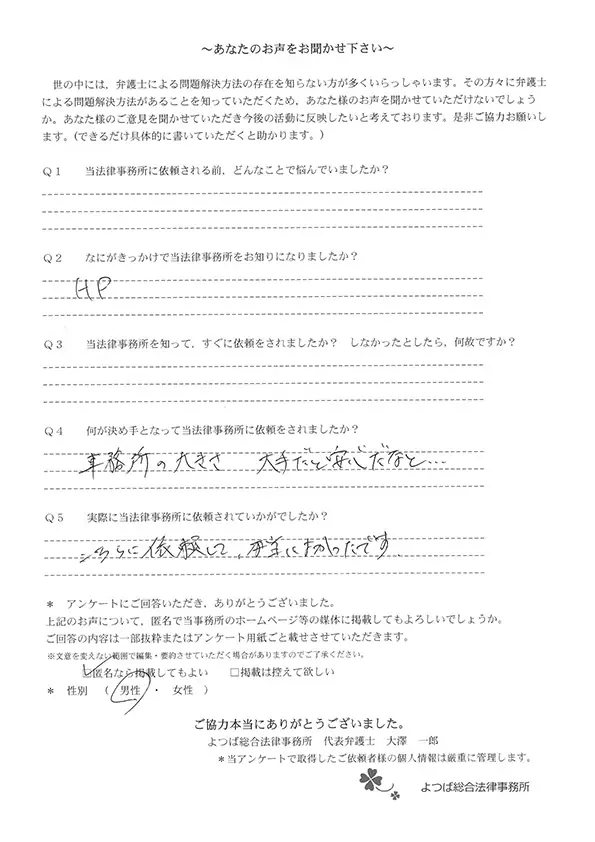 ～あなたのお声をお聞かせ下さい～
世の中には，弁護士による問題解決方法の存在を知らない方が多くいらっしゃいます。その方々に弁護士
による問題解決方法があることを知っていただくため，あなた様のお声を聞かせていただけないでしょう
か。あなた様のご意見を聞かせていただき今後の活動に反映したいと考えております。是非ご協力お願いし
ます。(できるだけ具体的に書いていただくと助かります。)
Q1　当法律事務所に依頼される前，どんなことで悩んでいましたか？
Q2　なにがきっかけで当法律事務所をお知りになりましたか？
HP
Q3　当法律事務所を知って，すぐに依頼をされましたか？　しなかったとしたら，何故ですか？
Q4　何が決め手となって当法律事務所に依頼をされましたか？
事務所の大きさ　大手だと安心だなと…
Q5　実際に当法律事務所に依頼されていかがでしたか？
こちらに依頼して，本当によかったです．
＊　アンケートにご回答いただき，ありがとうございました。
上記のお声について，匿名で当事務所のホームページ等の媒体に掲載してもよろしいでしょうか。
ご回答の内容は一部抜粋またはアンケート用紙ごと載せさせていただきます。
※文意を変えない範囲で編集・要約させていただく場合がありますのでご了承ください。
☑匿名なら掲載してもよい　□掲載は控えて欲しい
＊　性別　（　男性　・　女性　）
ご協力本当にありがとうございました。
よつば総合法律事務所　代表弁護士　大澤　一郎
＊当アンケートで取得したご依頼者様の個人情報は厳重に管理します。
よつば総合法律事務所